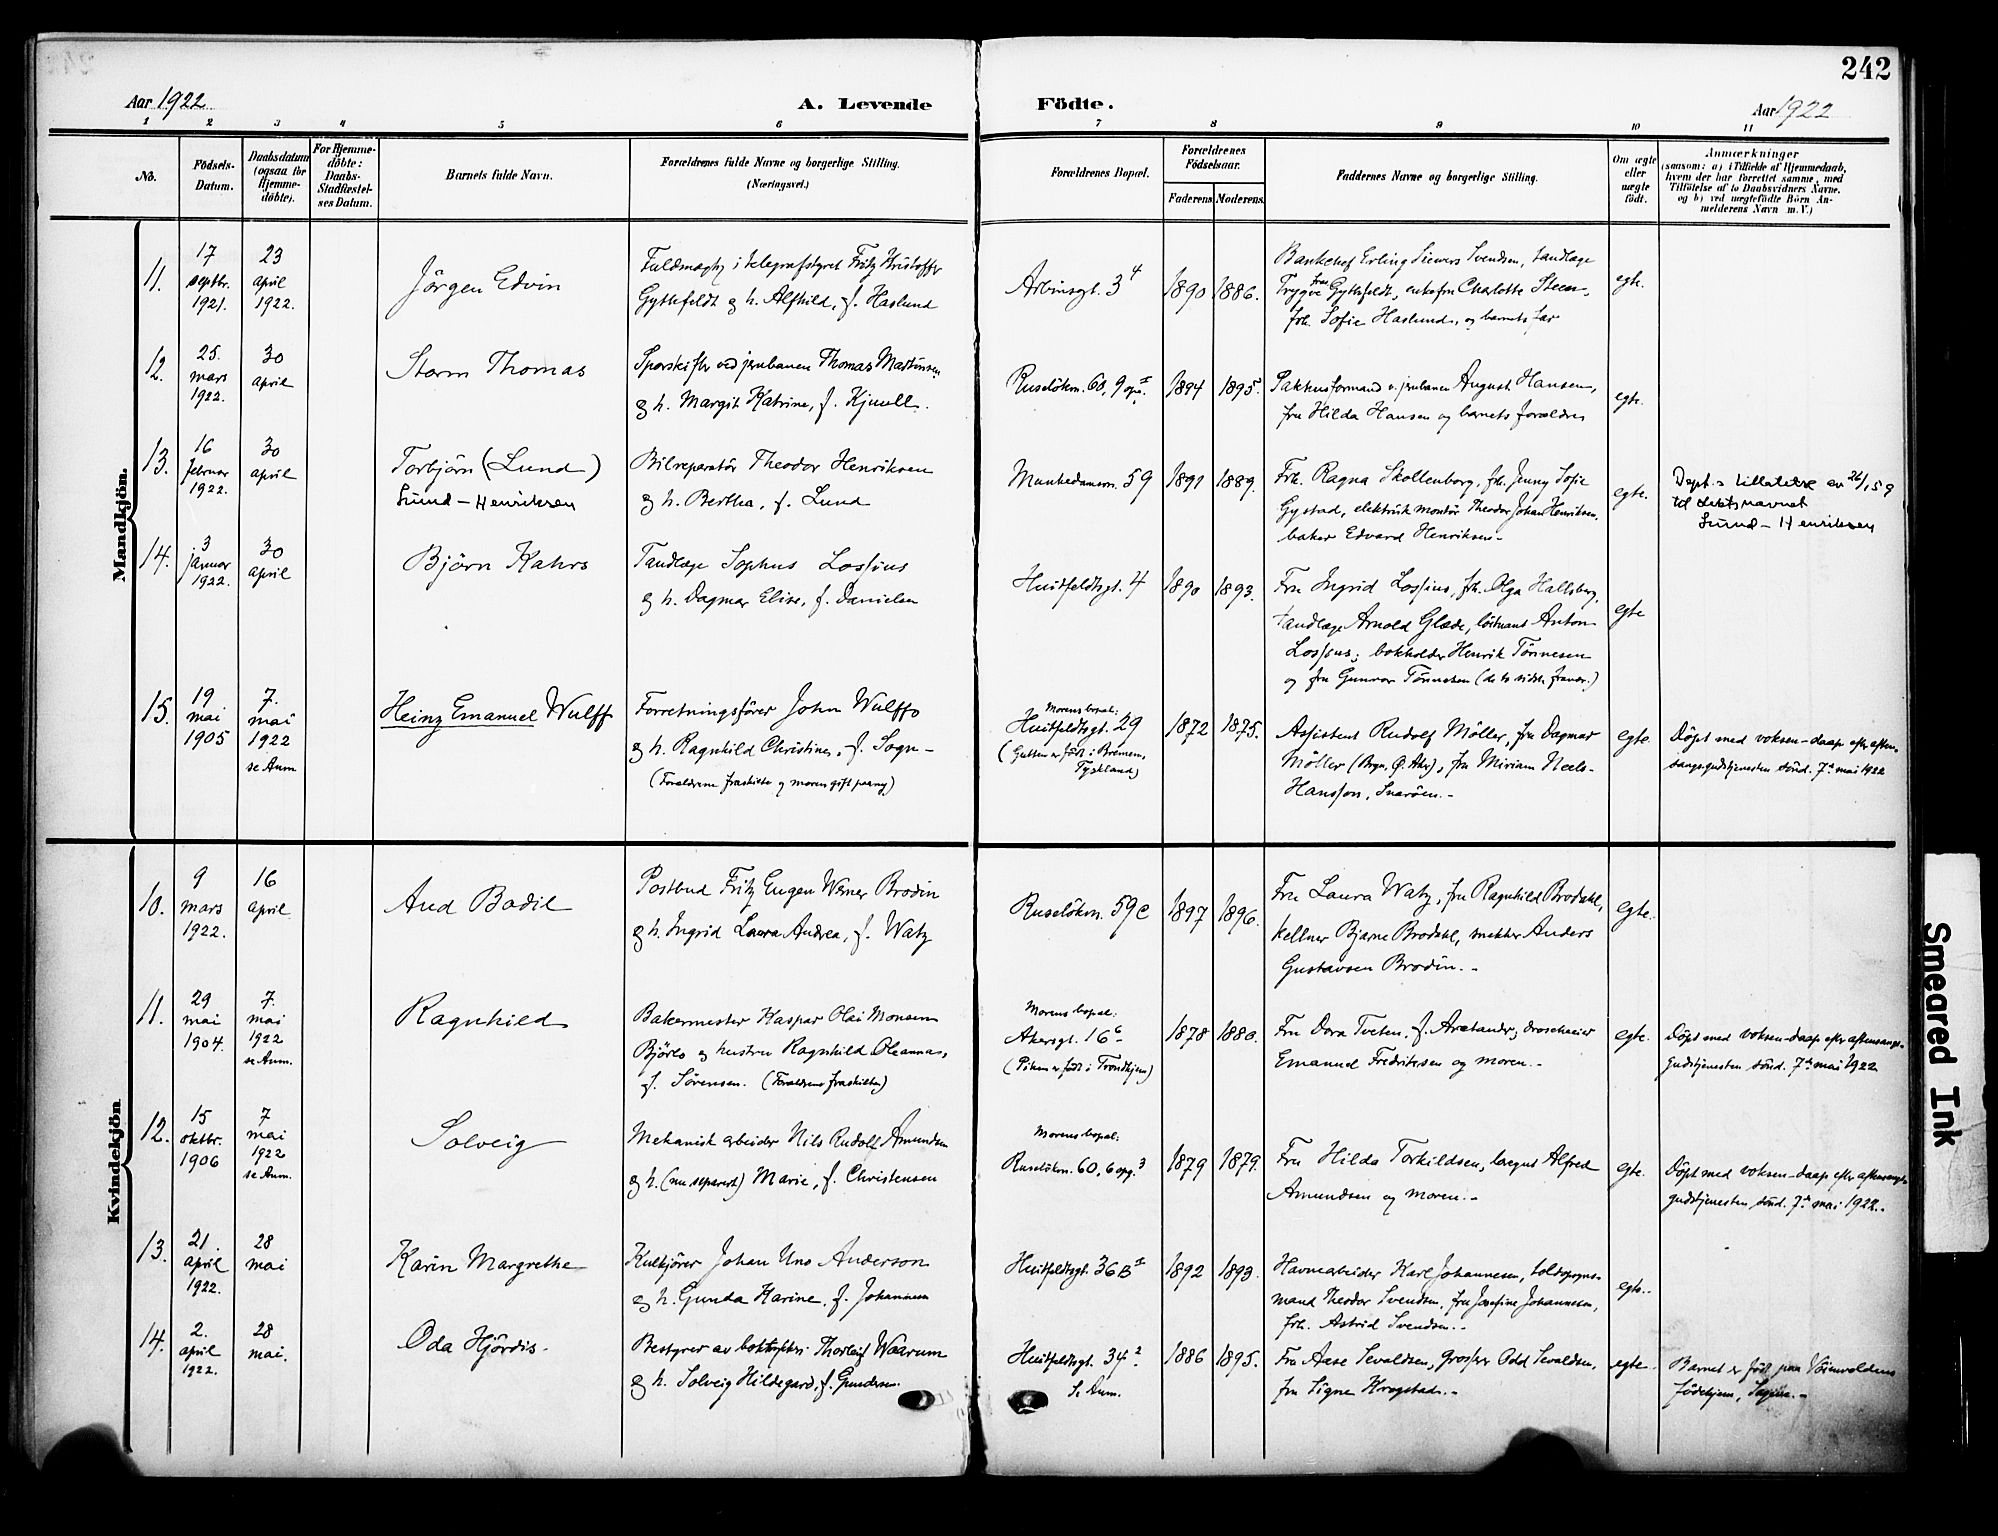 242
Aar 1922
A. Levende Födte.
Aar 1922
1 2 3 4 5 6 7 8 9 10 11
No.
Födsels-Datum.
Daabsdatum (ogsaa for Hjemme-døbte).
For Hjemme-døbte: Daabs-Stadfæstel-ses Datum.
Barnets fulde Navn.
Forældrenes fulde Navne og borgerlige Stilling.
(Næringsvei.)
Forældrenes Bopæl.
Forældrenes Födselsaar.
Faderens Moderens
Faddernes Navne og borgerlige Stilling.
Om ægte eller uægte födt.
Anmærkninger
(saasom: a) i Tilfælde af Hjemmedaab,
hvem der har forrettet samme, med
Tilföielse af to Daabsvidners Navne.
og b) ved uægtefödte Börn An-
melderens Navn m. V.)
Mandkjön.
11.
17 septbr. 1921.
23 april 1922.
Jörgen Edvin
Fuldmægtig i telegrafstyret Fritz Kristoffer
Gyttefeldt og h. Alfhild, f. Haslund
Arbinsgt. 3 4
1890 1886.
Bankchef Erling Siewers Svendsen, tandlæge
Trygve Gyttefeldt, enkefru Charlotte Steen,
frk. Sofie Haslund, og barnets far
egte.
12.
25. mars 1922.
30 april
Storm Thomas
Sporskifter ved jernbanen Thomas Martinsen
og h. Margit Katrine, f. Kjnell.
Ruselökvn. 60, 9 opg. I
1894 1895.
Pakhusformand v. jernbanen August Hansen,
fru Hilda Hansen og barnets forældre
egte.
13.
16 februar 1922.
30 april
Torbjörn (Lund)
Lund - Henriksen
Bilreparatör Theodor Henriksen
og h. Bertha, f. Lund
Munkedamsvn. 59
1891 1889.
Frk. Ragna Skollenborg, frk. Jenny Sofie
Gystad, elektrisk montör Theodor Johan Henriksen,
baker Edvard Henriksen.-
egte.
Dept.s tillatelse av 26/1 59
til slektsnavnet
Lund - Henriksen
14.
3 januar 1922.
30 april
Björn Kahrs
Tandlæge Sophus Lossius
og h. Dagmar Elise, f. Danielsen
Huitfeldtsgt. 4
1890 1893.
Fru Ingrid Lossius, frk. Olga Hallsberg,
tandlæge Arnold Glæde, löitnant Anton
Lossius; bokholder Henrik Tönnesen
og fru Gunvor Tönnesen (de to sidste fravær.)
egte
15.
19 mai 1905
7. mai 1922 se Anm.
Heinz Emanuel Wulff
Forretningsförer John Wulff
og h. Ragnhild Christine, f. Sogn-
(Forældrene fraskilte og moren gift paany)
Morens bopæl:
Huitfeldtsgt. 29
(Gutten er födt i Bremen,
Tyskland)
1872 1875.
Assistent Rudolf Möller, fru Dagmar
Möller (Bryn, Ø. Aker), fru Miriam Neels-
Hansson, Snaröen.-
egte.
Döpt med voksen-daap efter aften-
sangsgudstjenesten sönd. 7de mai 1922
Kvindekjön
10.
9 mars 1922.
16 april
Aud Bodil
Postbud Fritz Eugen Werner Brodin
og h. Ingrid Laura Andrea, f. Watz
Ruselökvn. 59 c
1897 1896.
Fru Laura Watz, fru Ragnhild Brodahl,
kellner Bjarne Brodahl, snekker Anders
Gustavsen Brodin.-
egte.
11.
29 mai 1904.
7. mai 1922 se Anm.
Ragnhild
Bakermester Kaspar Olai Monsen
Björlo og hustru Ragnhild Oleanna,
f. Sörensen. (Forældrene fraskilte)
Morens bopæl:
Akersgt. 16
(Piken er födt i Trondhjem)
1878 1880.
Fru Dora Tveten, f. Arctander, droscheeier
Emanuel Fredriksen og moren.-
egte.
Döpt med voksen-daap efter aftensangs-
gudstjenesten sönd. 7de mai 1922
12.
15 oktbr. 1906
7 mai 1922 se Anm.
Solveig
Mekanisk arbeider Nils Rudolf Amundsen
og h. (nu separert) Marie, f. Christensen
Morens bopæl:
Ruselökvn. 60, 6 opg. 3
1879 1879.
Fru Hilda Torkildsen, Alfred
Amundsen og moren.-
egte.
Döpt med voksen-daap efter aftensangs-
gudstjenesten sönd. 7de mai 1922.-
13.
21. april 1922.
28 mai
Karin Margrethe
Kulkjörer Johan Uno Anderson
og h. Gunda Karine, f. Johannesen
Huitfeldtsgt. 36 B I
1892 1893.
Havnearbeider Karl Johannesen, toldopsyns-
mand Theodor Svendsen, fru Josefine Johannesen,
frk. Astrid Svendsen.-
egte.
14.
2. april 1922.
28 mai.
Oda Hjördis.
Bestyrer av boktrykkeri Thorleif Waarum
og h. Solveig Hildegard, f. Gundersen.
Huitfeldtsgt. 34 2.
Se Anm.
1886 1895.
Fru Aase Sevaldsen, grosserer Odd Sevaldsen,
fru Signe Krogstad.-
egte.
Barnet er födt paa Voienvoldens
födehjem, Sagene.-
Smeared Ink